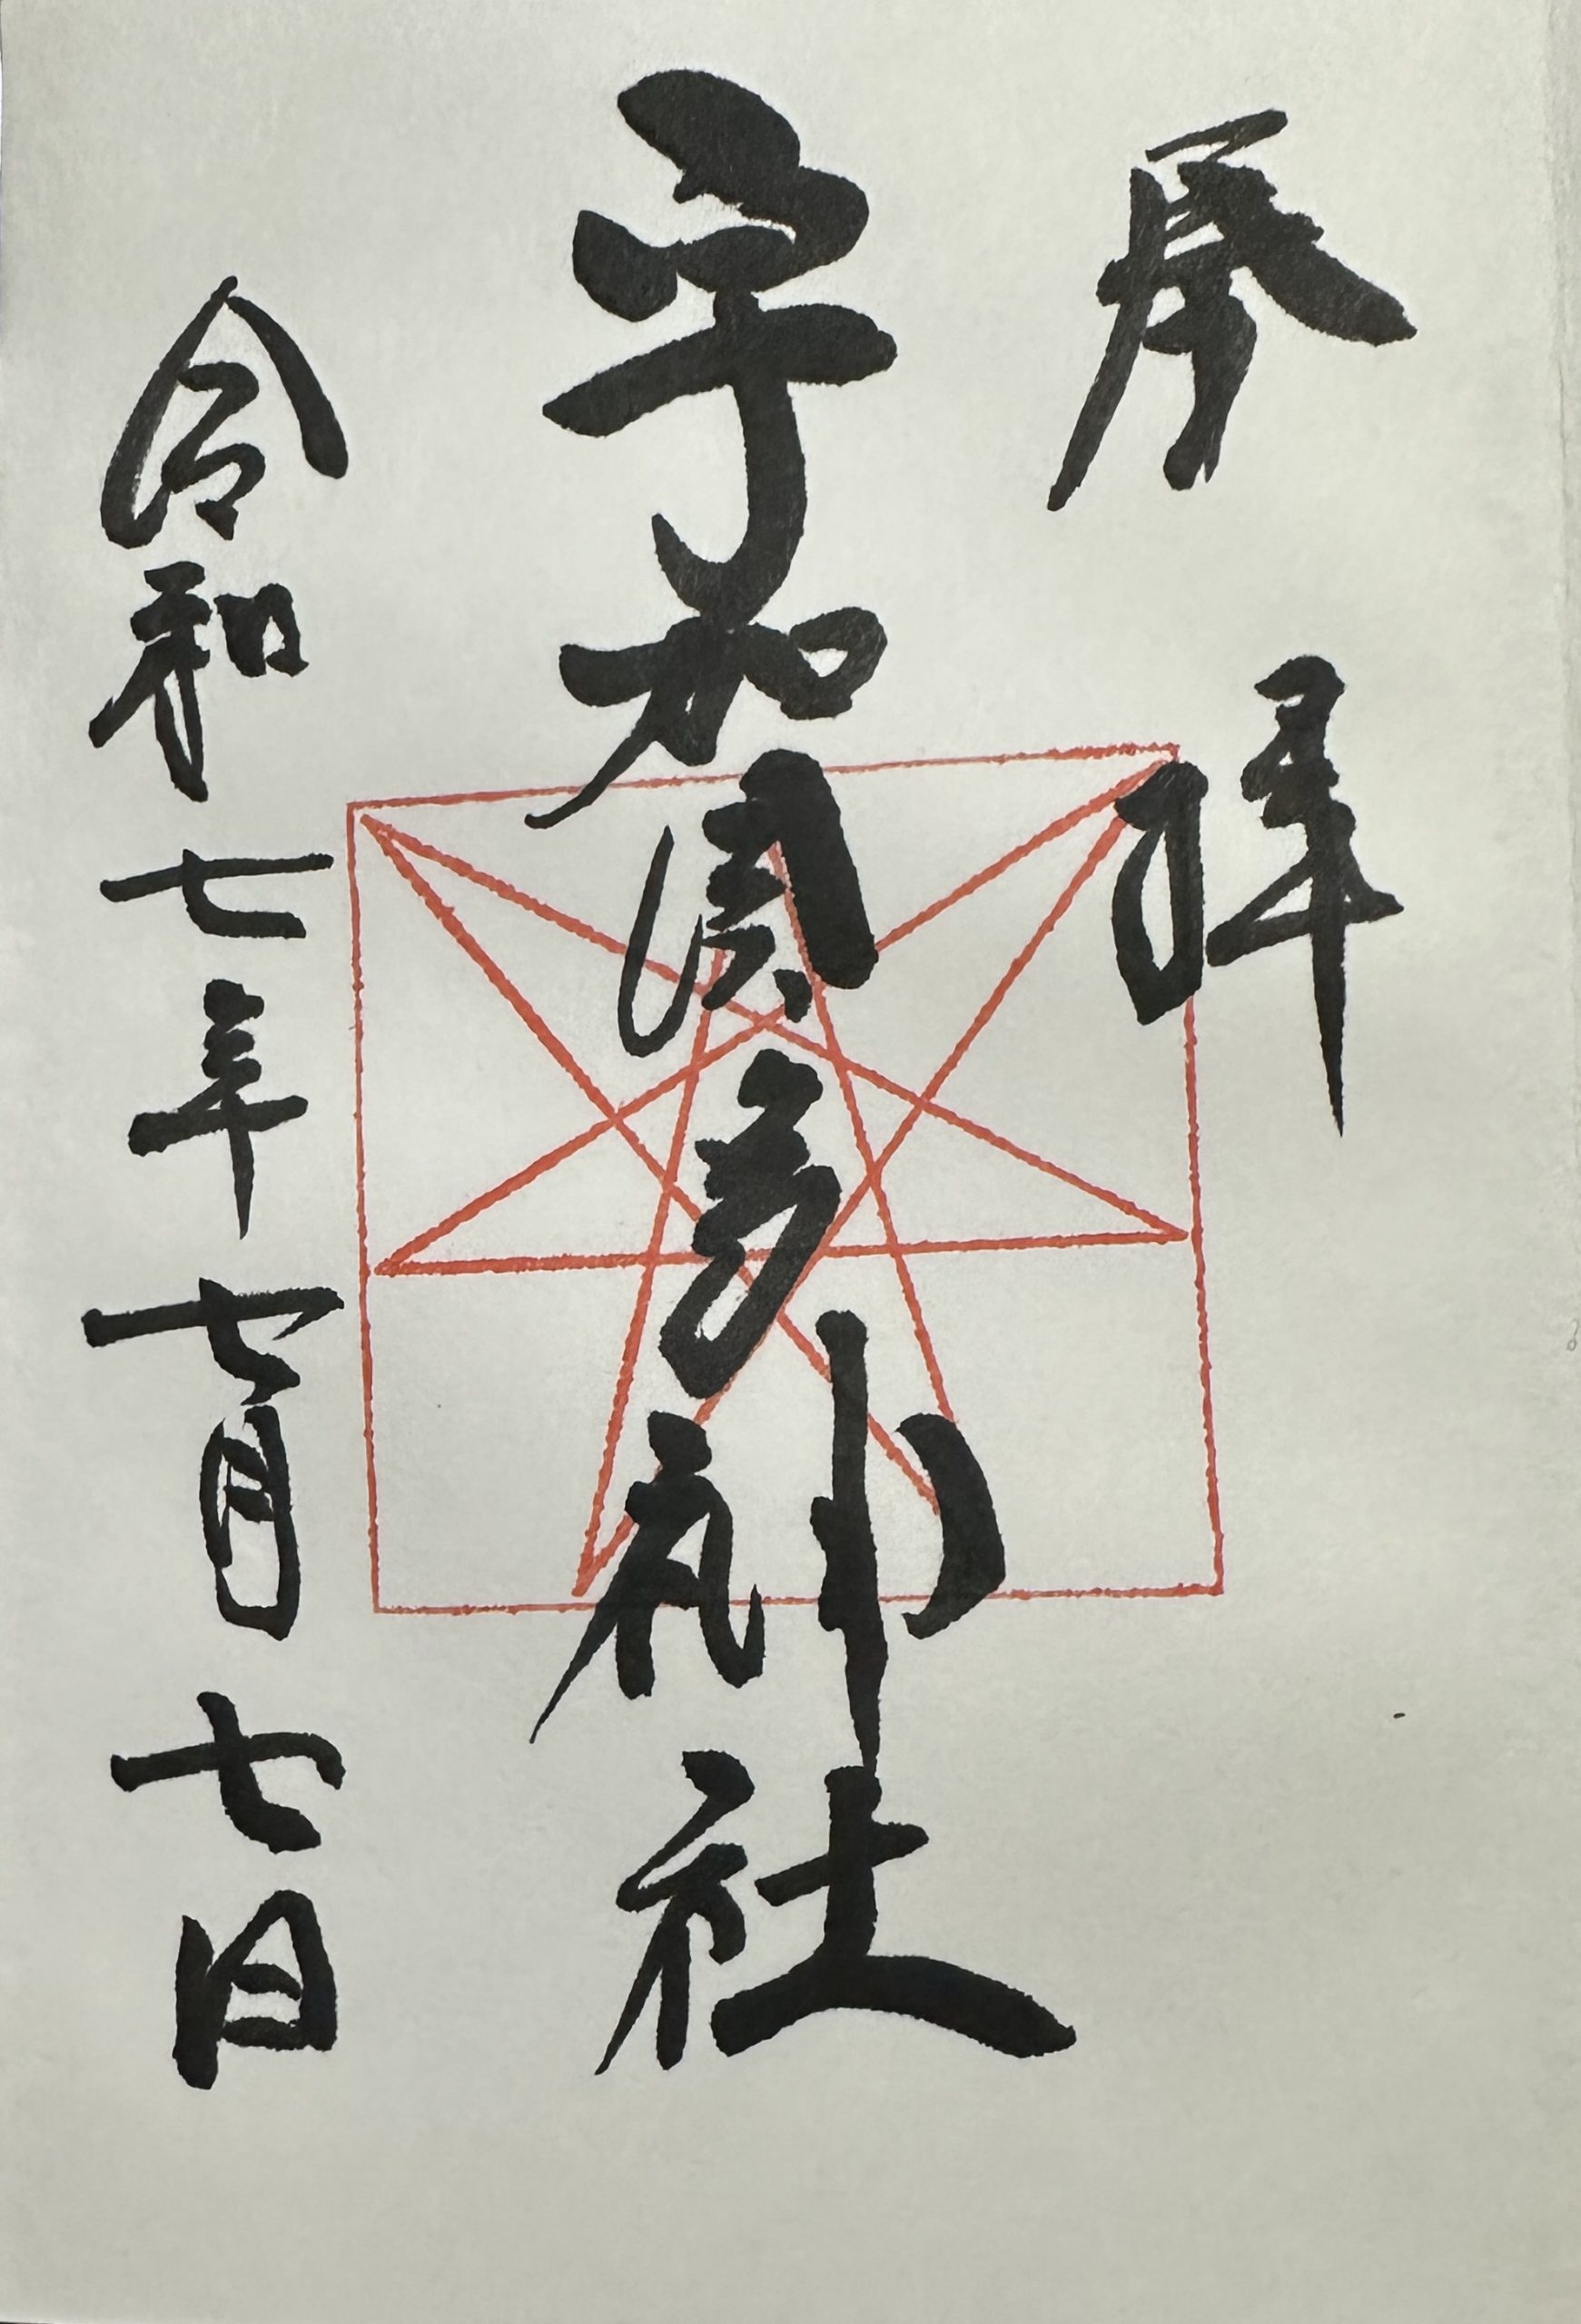 奉拝
宇加賀多神社
令和七年七月七日